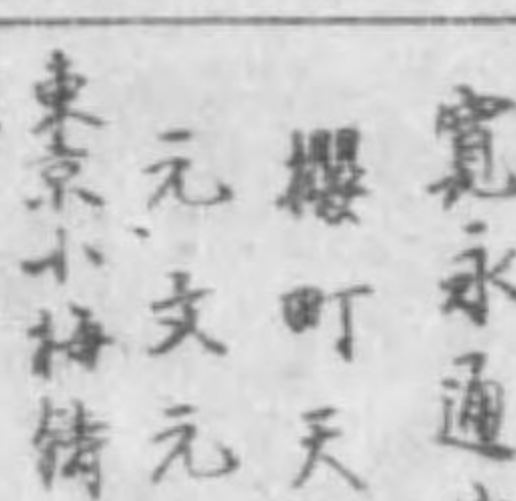 寛永通
櫻町天
元文元
東京小梅鋳